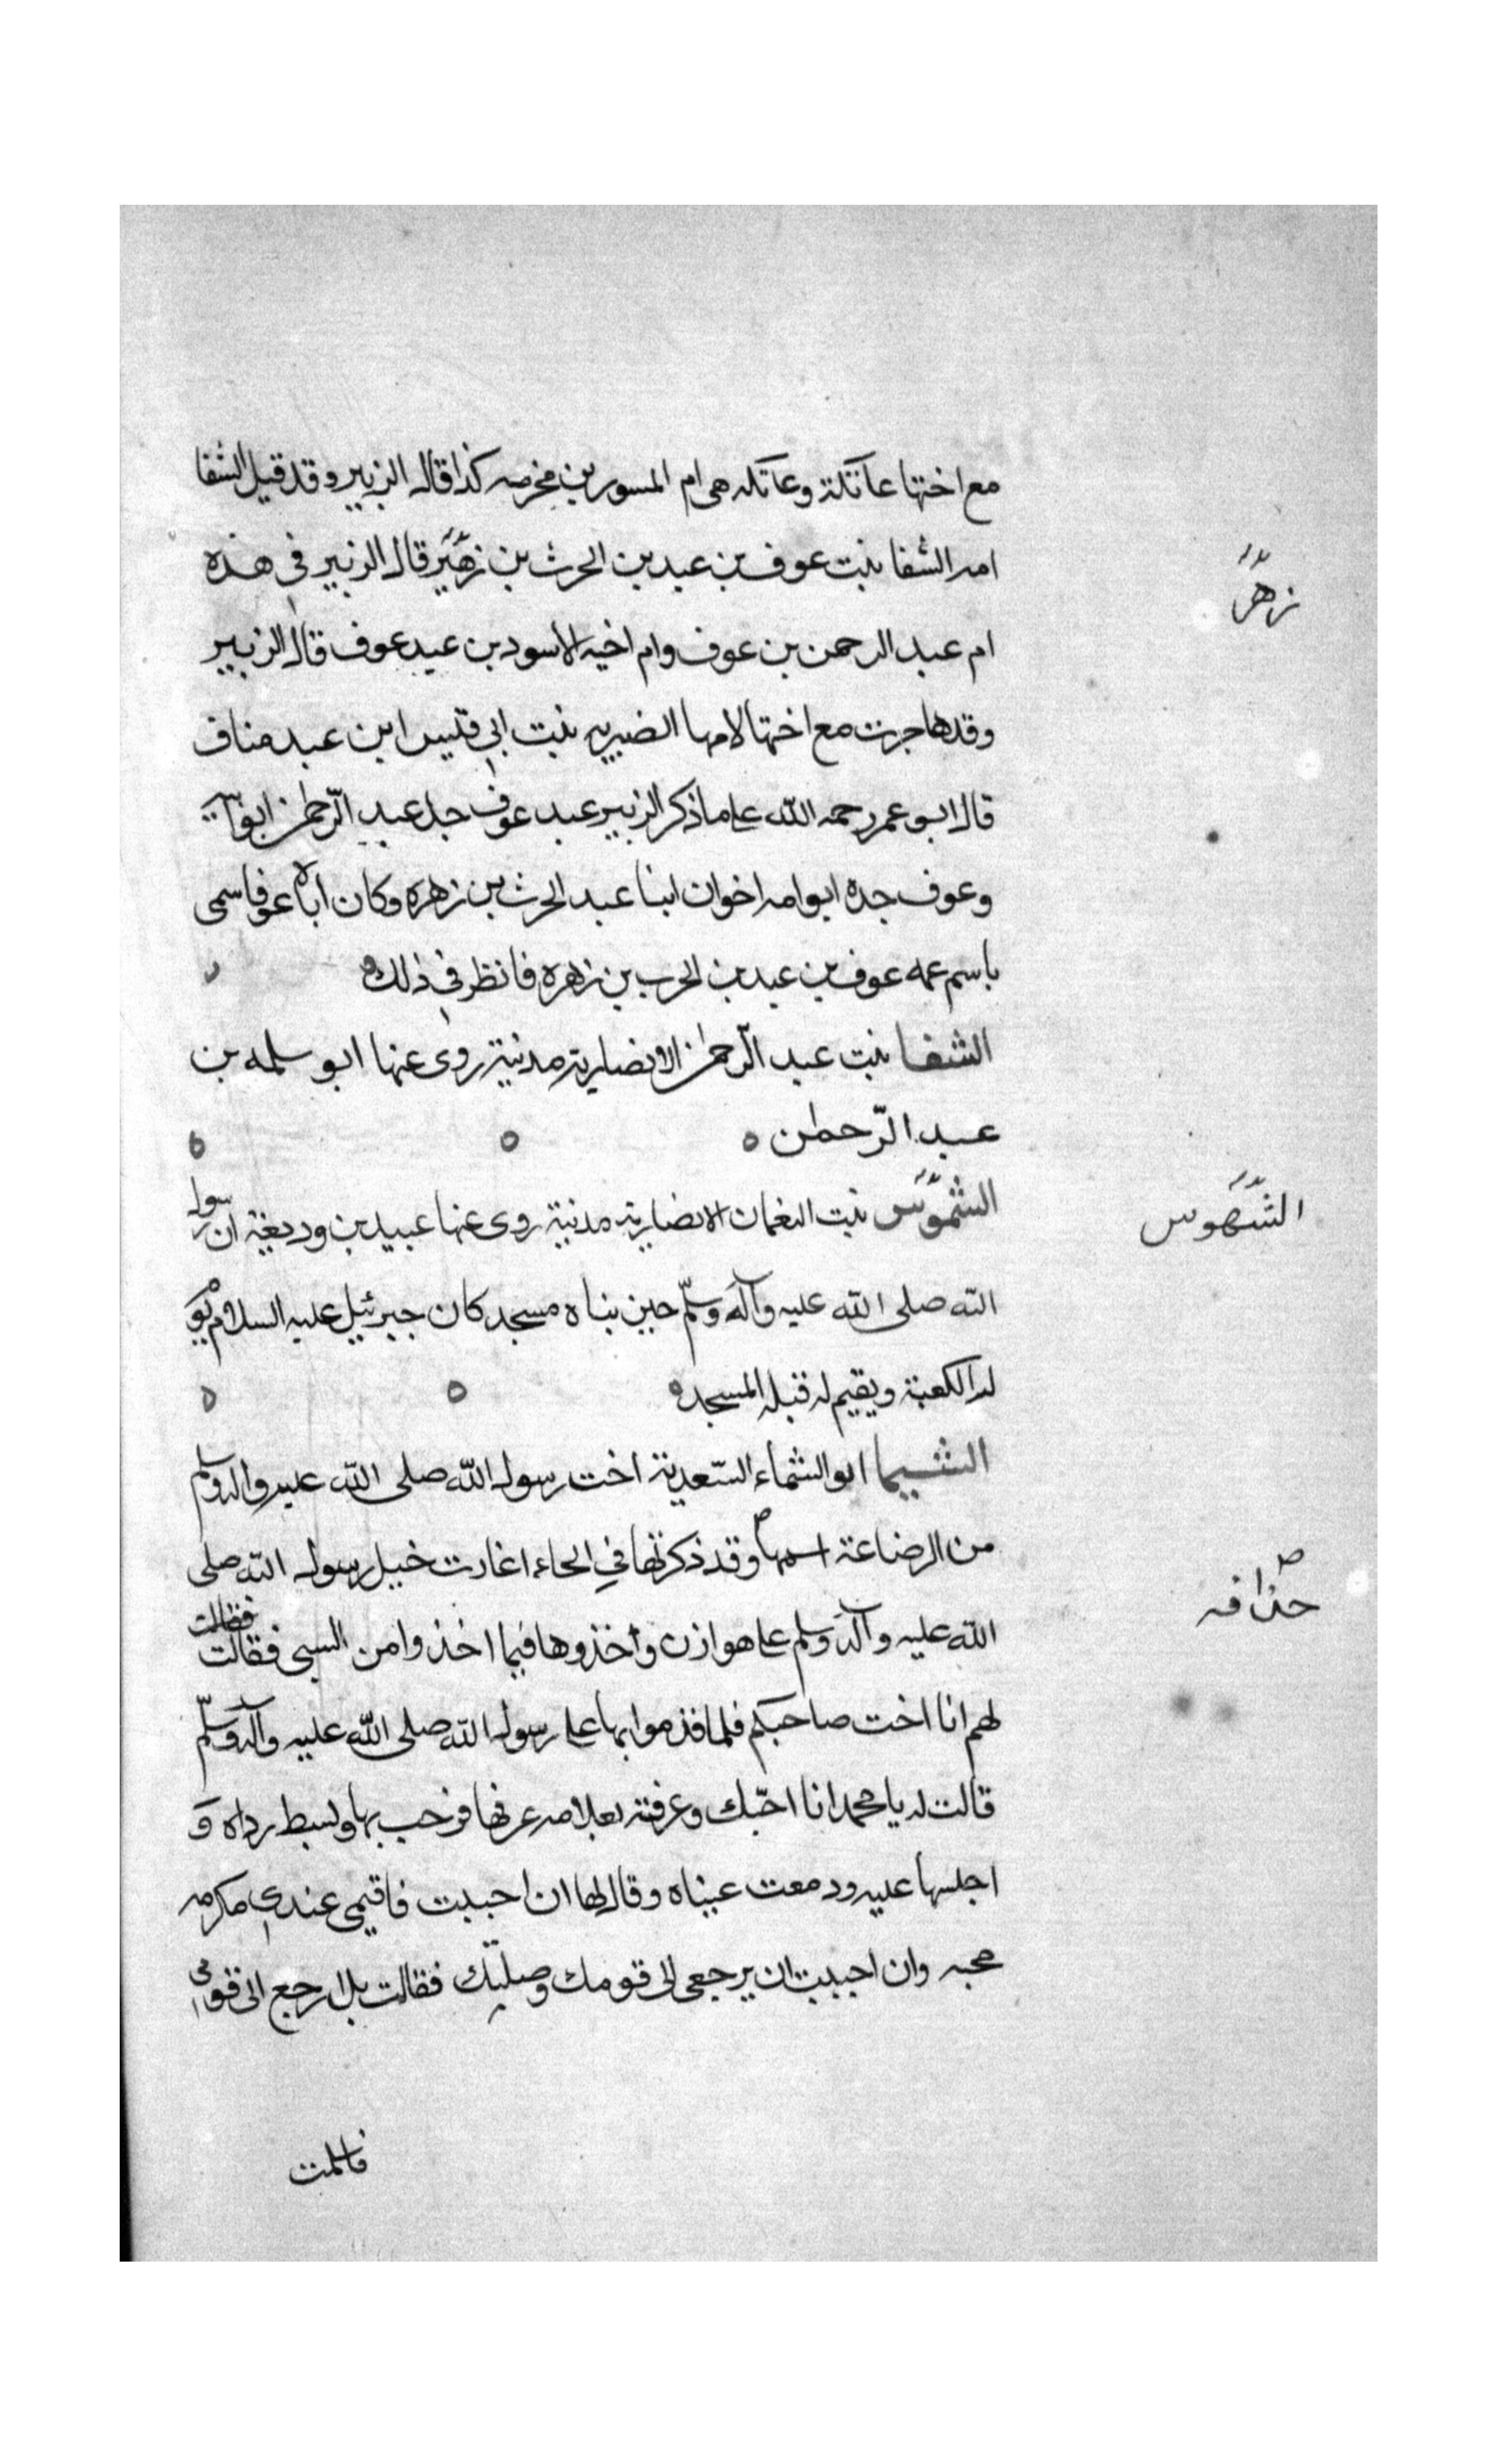 مع اختها عاتكة وعاتكه هى ام المسور بن مخرمه كذا قاله الزبير وقد قيل الشفا
امه الشفا بنت عوف بن عبد بن الحرث بن زهير قال الزبير فى هذه
زهر
ام عبد الرحمن بن عوف وام اخيه الاسود بن عبد عوف قال الزبير
وقد هاجرت مع اختها لامها الضيريه بنت ابي قليس ابن عبد مناف
قال ابو عمر رحمه الله على ما ذكر الزبير عبد عوف جد عبد الرحمن ابو
وعوف جده ابو امه اخوان ابنا عبد الحرث بن زهرة وكان اباه عوفا سمى
باسم عمه عوف بن عبد بن الحرب بن زهرة فانظر في ذلك
الشفا بنت عبد الرحمن الانصارية مدنية روى عنها ابو سلمه بن
عبد الرحمن
الشموس بنت النعمان الانصارية مدنية روى عنها عبيد بن وديعة ان رسول
الشهوس
الله صلى الله عليه وآله وسلم حين بناه مسجد كان جبرئيل عليه السلام
له الكعبة ويقيم له قبلة المسجد
الشيما او الشماء السعدية اخت رسول الله صلى الله عليه واله وسلم
من الرضاعة اسمها وقد ذكرتها في الحاء اغارت خيل رسول الله صلى
حذافه
الله عليه وآله وسلم على هوازن واخذوها فيما اخذوا من السبى فقالت
فقالت
لهم انا اخت صاحبكم فلما قدموا بها على رسول الله صلى الله عليه وآله وسلم
قالت له يا محمد انا احبك وعرفته بعلامه عرفها فرحب بها وبسط رداه و
اجلسها عليه ودمعت عيناه وقال لها ان احببت فاقيمى عندي مكرمه
محبه وان احببت ان يرجعى الى قومك وصلتك فقالت بل ارجع الى قومى
فاسلمت